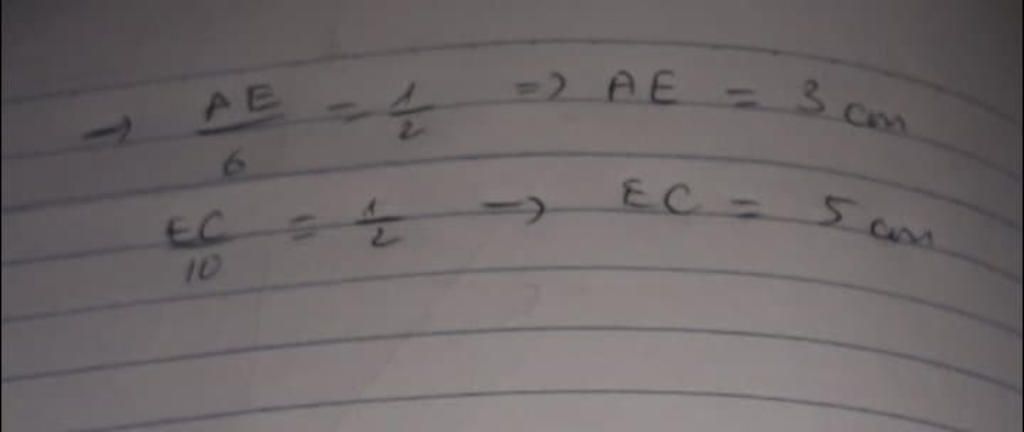 → AE/6 = 1/2 => AE = 3 cm
EC/10 = 1/2 → EC = 5 cm